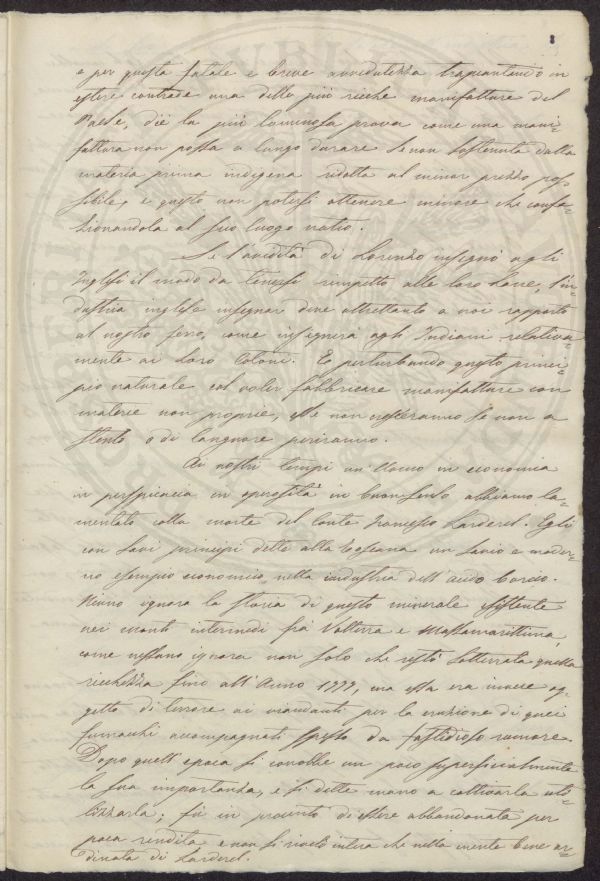 8
e per questa fatale e breve avvedutezza trapiantando in
estere contrade una delle più ricche manifatture del
Paese, diè la più luminosa prova come una mani-
fattura non possa a lungo durare se non sostenuta dalla
materia prima indigena ridotta al minor prezzo pos-
sibile, e questo non potersi ottenere minore che confe-
zionandola al suo luogo natio.
Se l'avidità di Lorenzo insegnò agli
Inglesi il modo da tenersi rimpetto alle loro Lane, l'in-
dustria inglese insegnar deve altrettanto a noi rapporto
al nostro ferro, come insegnerà agli Indiani relativa-
mente ai loro Cotoni. E perturbando questo princi-
pio naturale col voler fabbricare manifatture con
materie non proprie, esse non vivranno se non a
stento o di languore periranno.
Ai nostri tempi un Uomo in economia
in perspicacia in operosità in buon senso abbiamo la-
mentato colla morte del Conte Francesco Larderel. Egli
con savi principi dette alla Toscana un savio e moder-
no esempio economico nella industria dell'acido borico.
Niuno ignora la storia di questo minerale esistente
nei monti intermedi fra Volterra e Massamarittima,
come nessuno ignora non solo che restò sotterrata quella
ricchezza fino all'Anno 1777, ma essa era invece og-
getto di terrore ai viandanti per la eruzione di quei
fumacchi accompagnati spesso da fastidioso rumore.
Dopo quell'epoca si conobbe un poco superficialmente
la sua importanza, e si dette mano a coltivarla uti-
lizzarla; fù in procinto di essere abbandonata per
poca rendita e non si rivelò intera che nella mente bene or-
dinata di Larderel.